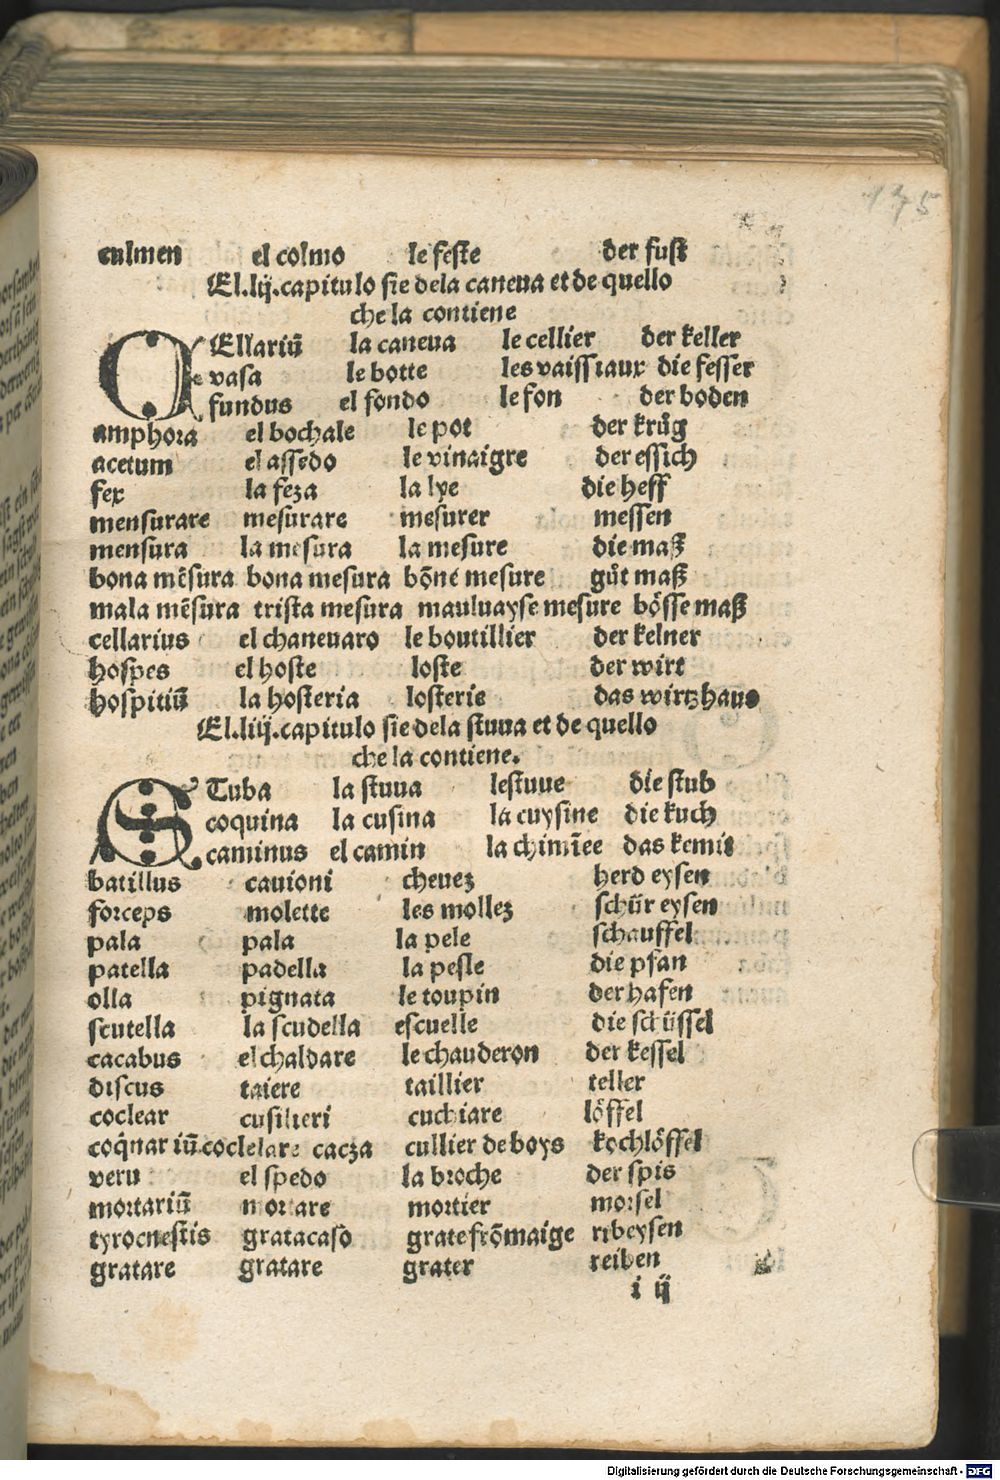 175
culmen el colmo le feste der fust
El.lij.capitulo sie dela caneua et de quello
che la contiene
CEllariū la caneua le cellier der keller
vasa le botte les vaissiaux die fesser
fundus el fondo le fon der boden
amphora el bochale le pot der krůg
acetum el assedo le vinaigre der essich
fex la feza la lye die heff
mensurare mesurare mesurer messen
mensura la mesura la mesure die maß
bona mēsura bona mesura bōne mesure gůt maß
mala mēsura trista mesura mauluayse mesure bösse maß
cellarius el chaneuaro le boutillier der kelner
hospes el hoste loste der wirt
hospitiū la hosteria losterie das wirtzhaus
El.liij.capitulo sie dela stuua et de quello
che la contiene.
STuba la stuua lestuue die stub
coquina la cusina la cuysine die kuch
caminus el camin la chimīee das kemit
batillus cauioni cheuez herd eysen
forceps molette les mollez schür eysen
pala pala la pele schauffel
patella padella la pesle die pfan
olla pignata le toupin der hafen
scutella la scudella escuelle die schüssel
cacabus el chaldare le chauderon der kessel
discus taiere taillier teller
coclear cusilieri cuchiare löffel
coq̄nar iū.coclelare cacza cullier de boys kochlöffel
veru el spedo la broche der spis
mortariū mortare mortier morsel
tyrocnestis gratacaso grate frōmaige ribeysen
gratare gratare grater reiben
i ij
Digitalisierung gefördert durch die Deutsche Forschungsgemeinschaft - DFG